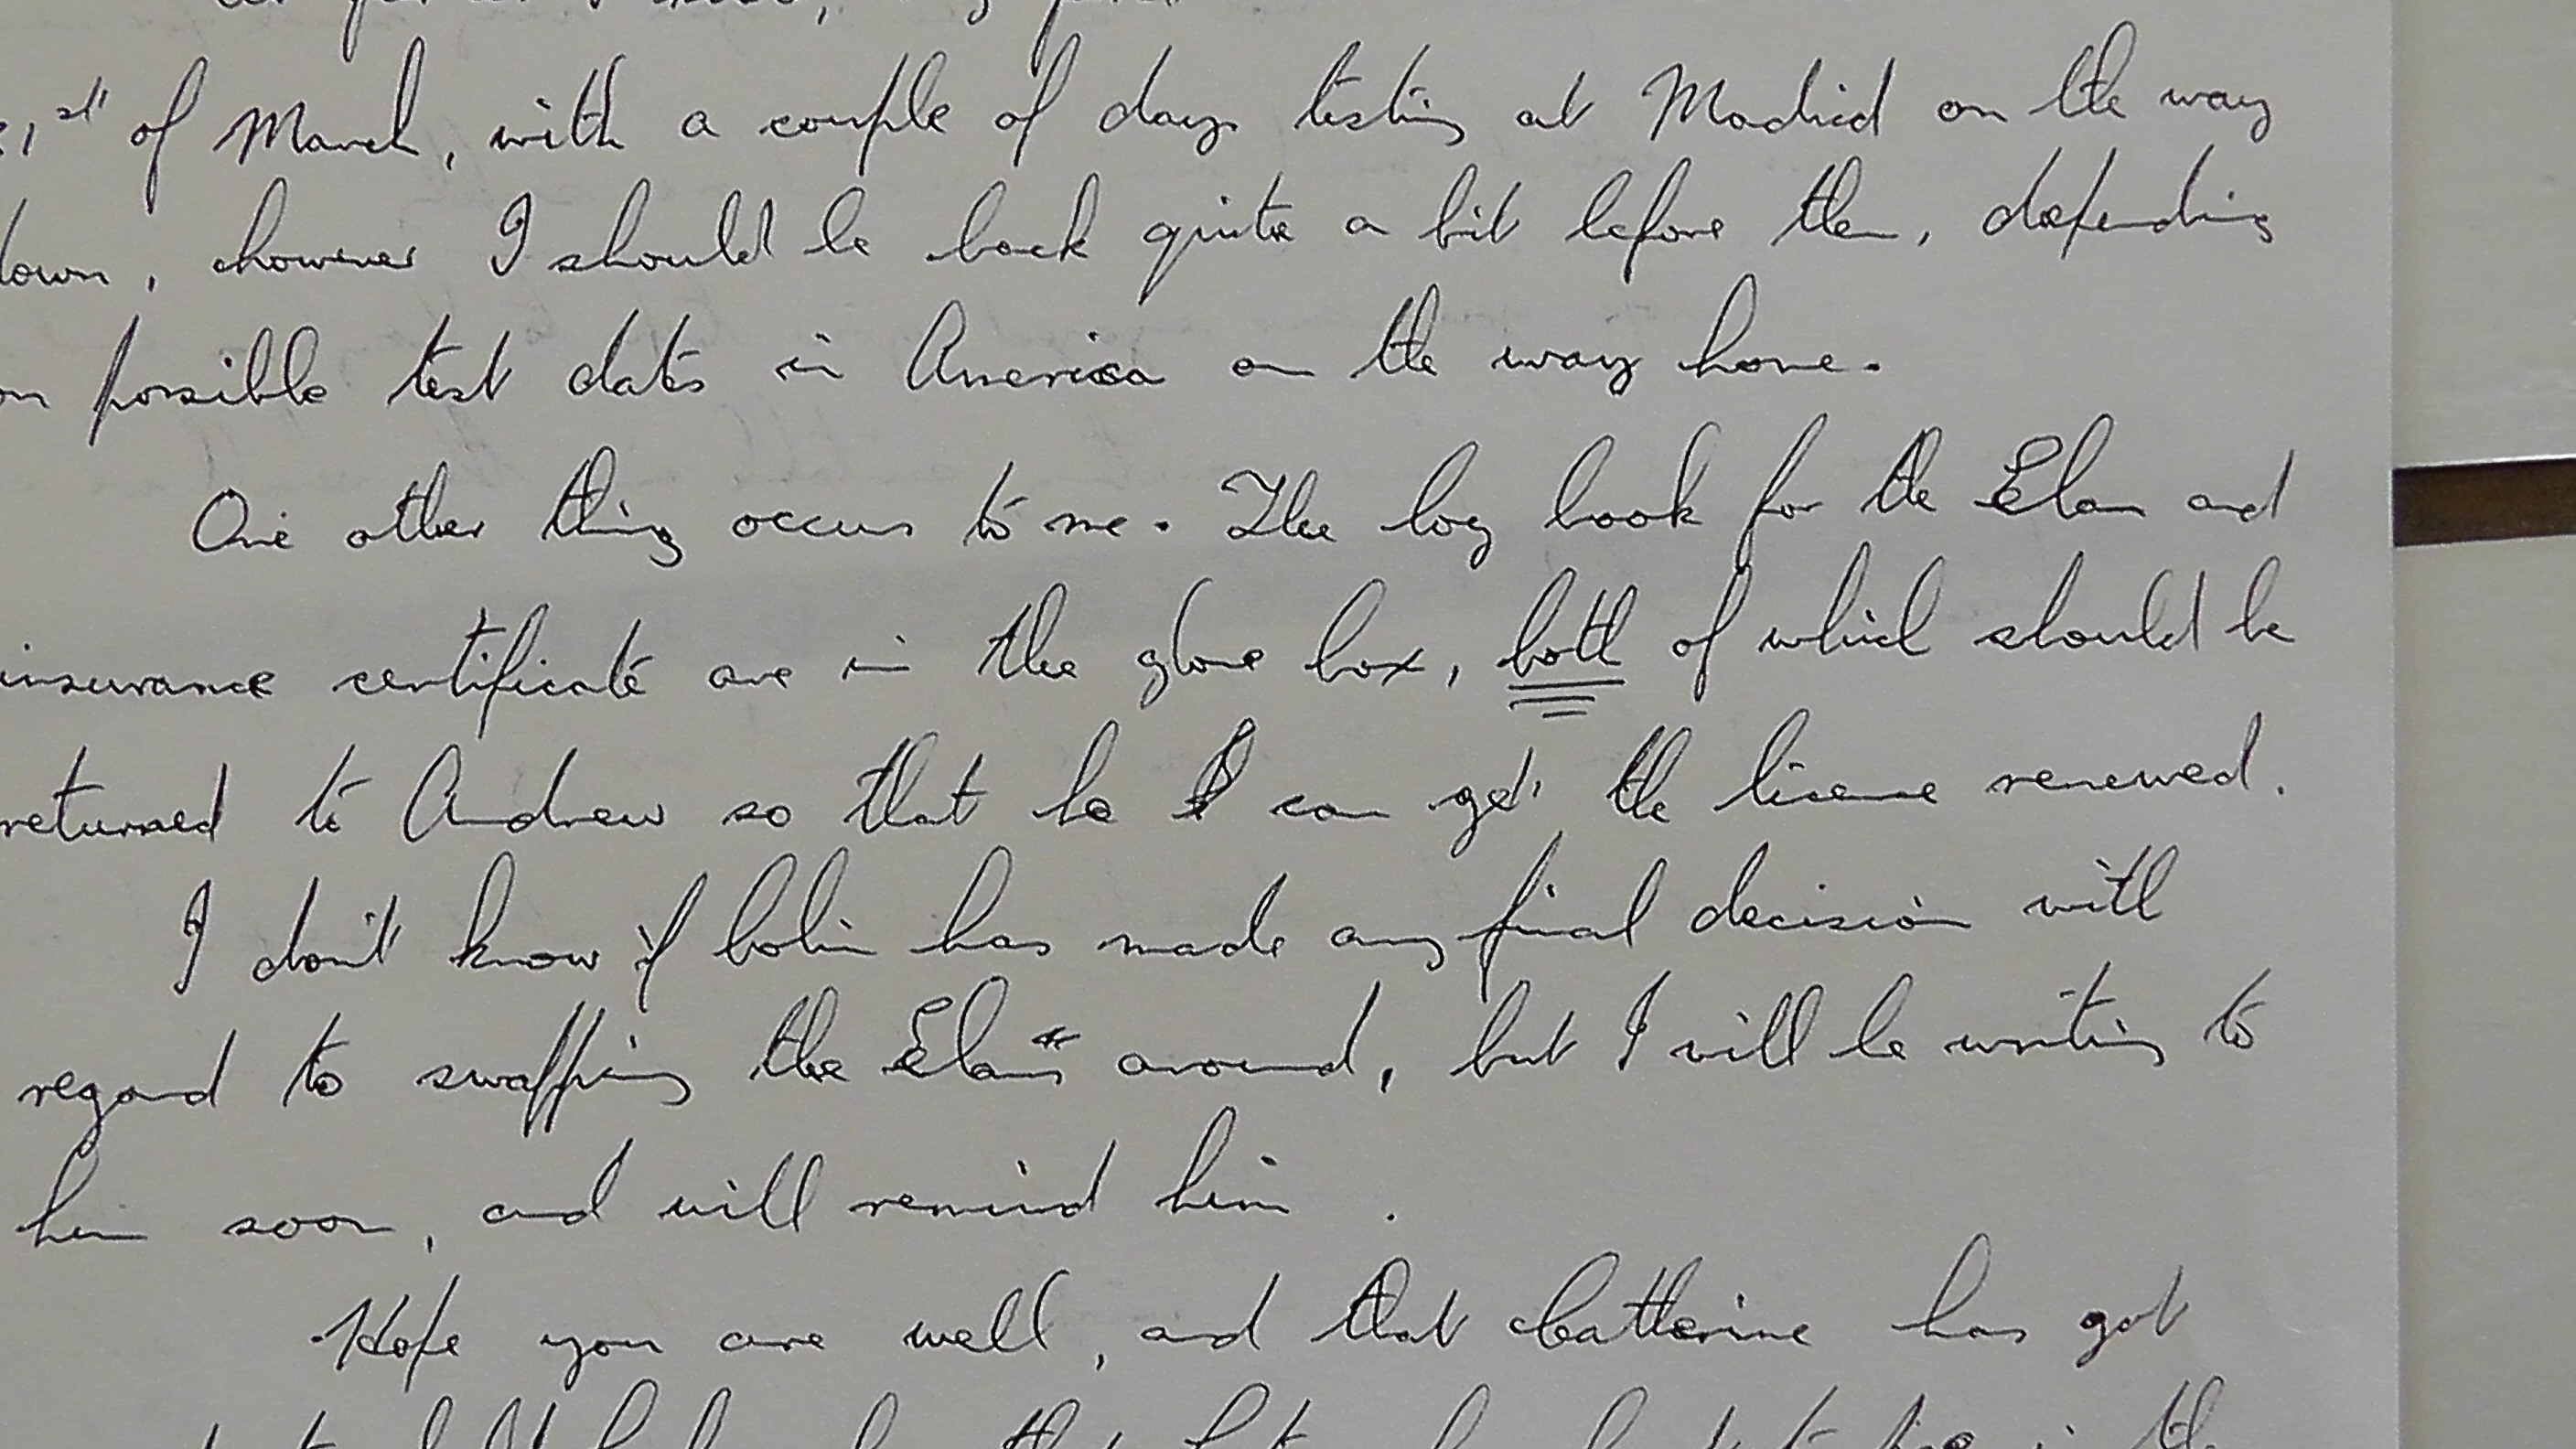 1st of March, with a couple of days testing at Madrid on the way
down, however I should be back quite a bit before then, depending
on possible test dates in America on the way home.
One other thing occurs to me. The log book for the Elan and
insurance certificate are in the glove box, both of which should be
returned to Andrew so that he can get the license renewed.
I don't know if Colin has made any final decision with
regard to swapping the Elans around, but I will be writing to
him soon, and will remind him.
Hope you are well, and that Catherine has got